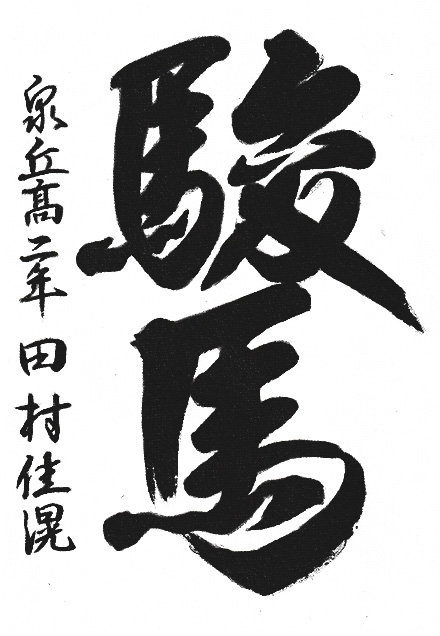 駿馬
泉丘高二年 田村佳滉